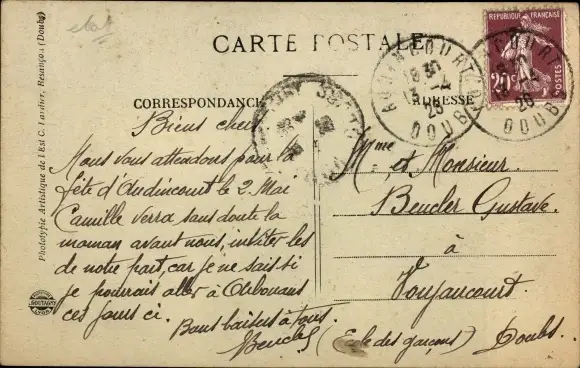 CARTE POSTALE
CORRESPONDANCE
ADRESSE
RÉPUBLIQUE FRANÇAISE
20c
POSTES
AUDINCOURT
18 30
13 -4
26
DOUBS
Biens chers
Nous vous attendons pour la
fête d'Audincourt le 2 Mai
Camille verra sans doute la
maman avant nous, insister les
de notre part, car je ne sais si
je pourrais aller à Arbouans
ces jours ci.
Bons baisers à tous.
Beucler
Mme et Monsieur
Beucler Gustave.
à
Voujaucourt.
(Ecole des garçons) Doubs.
Phototypie Artistique de l'Est C. Lardier, Besançon (Doubs)